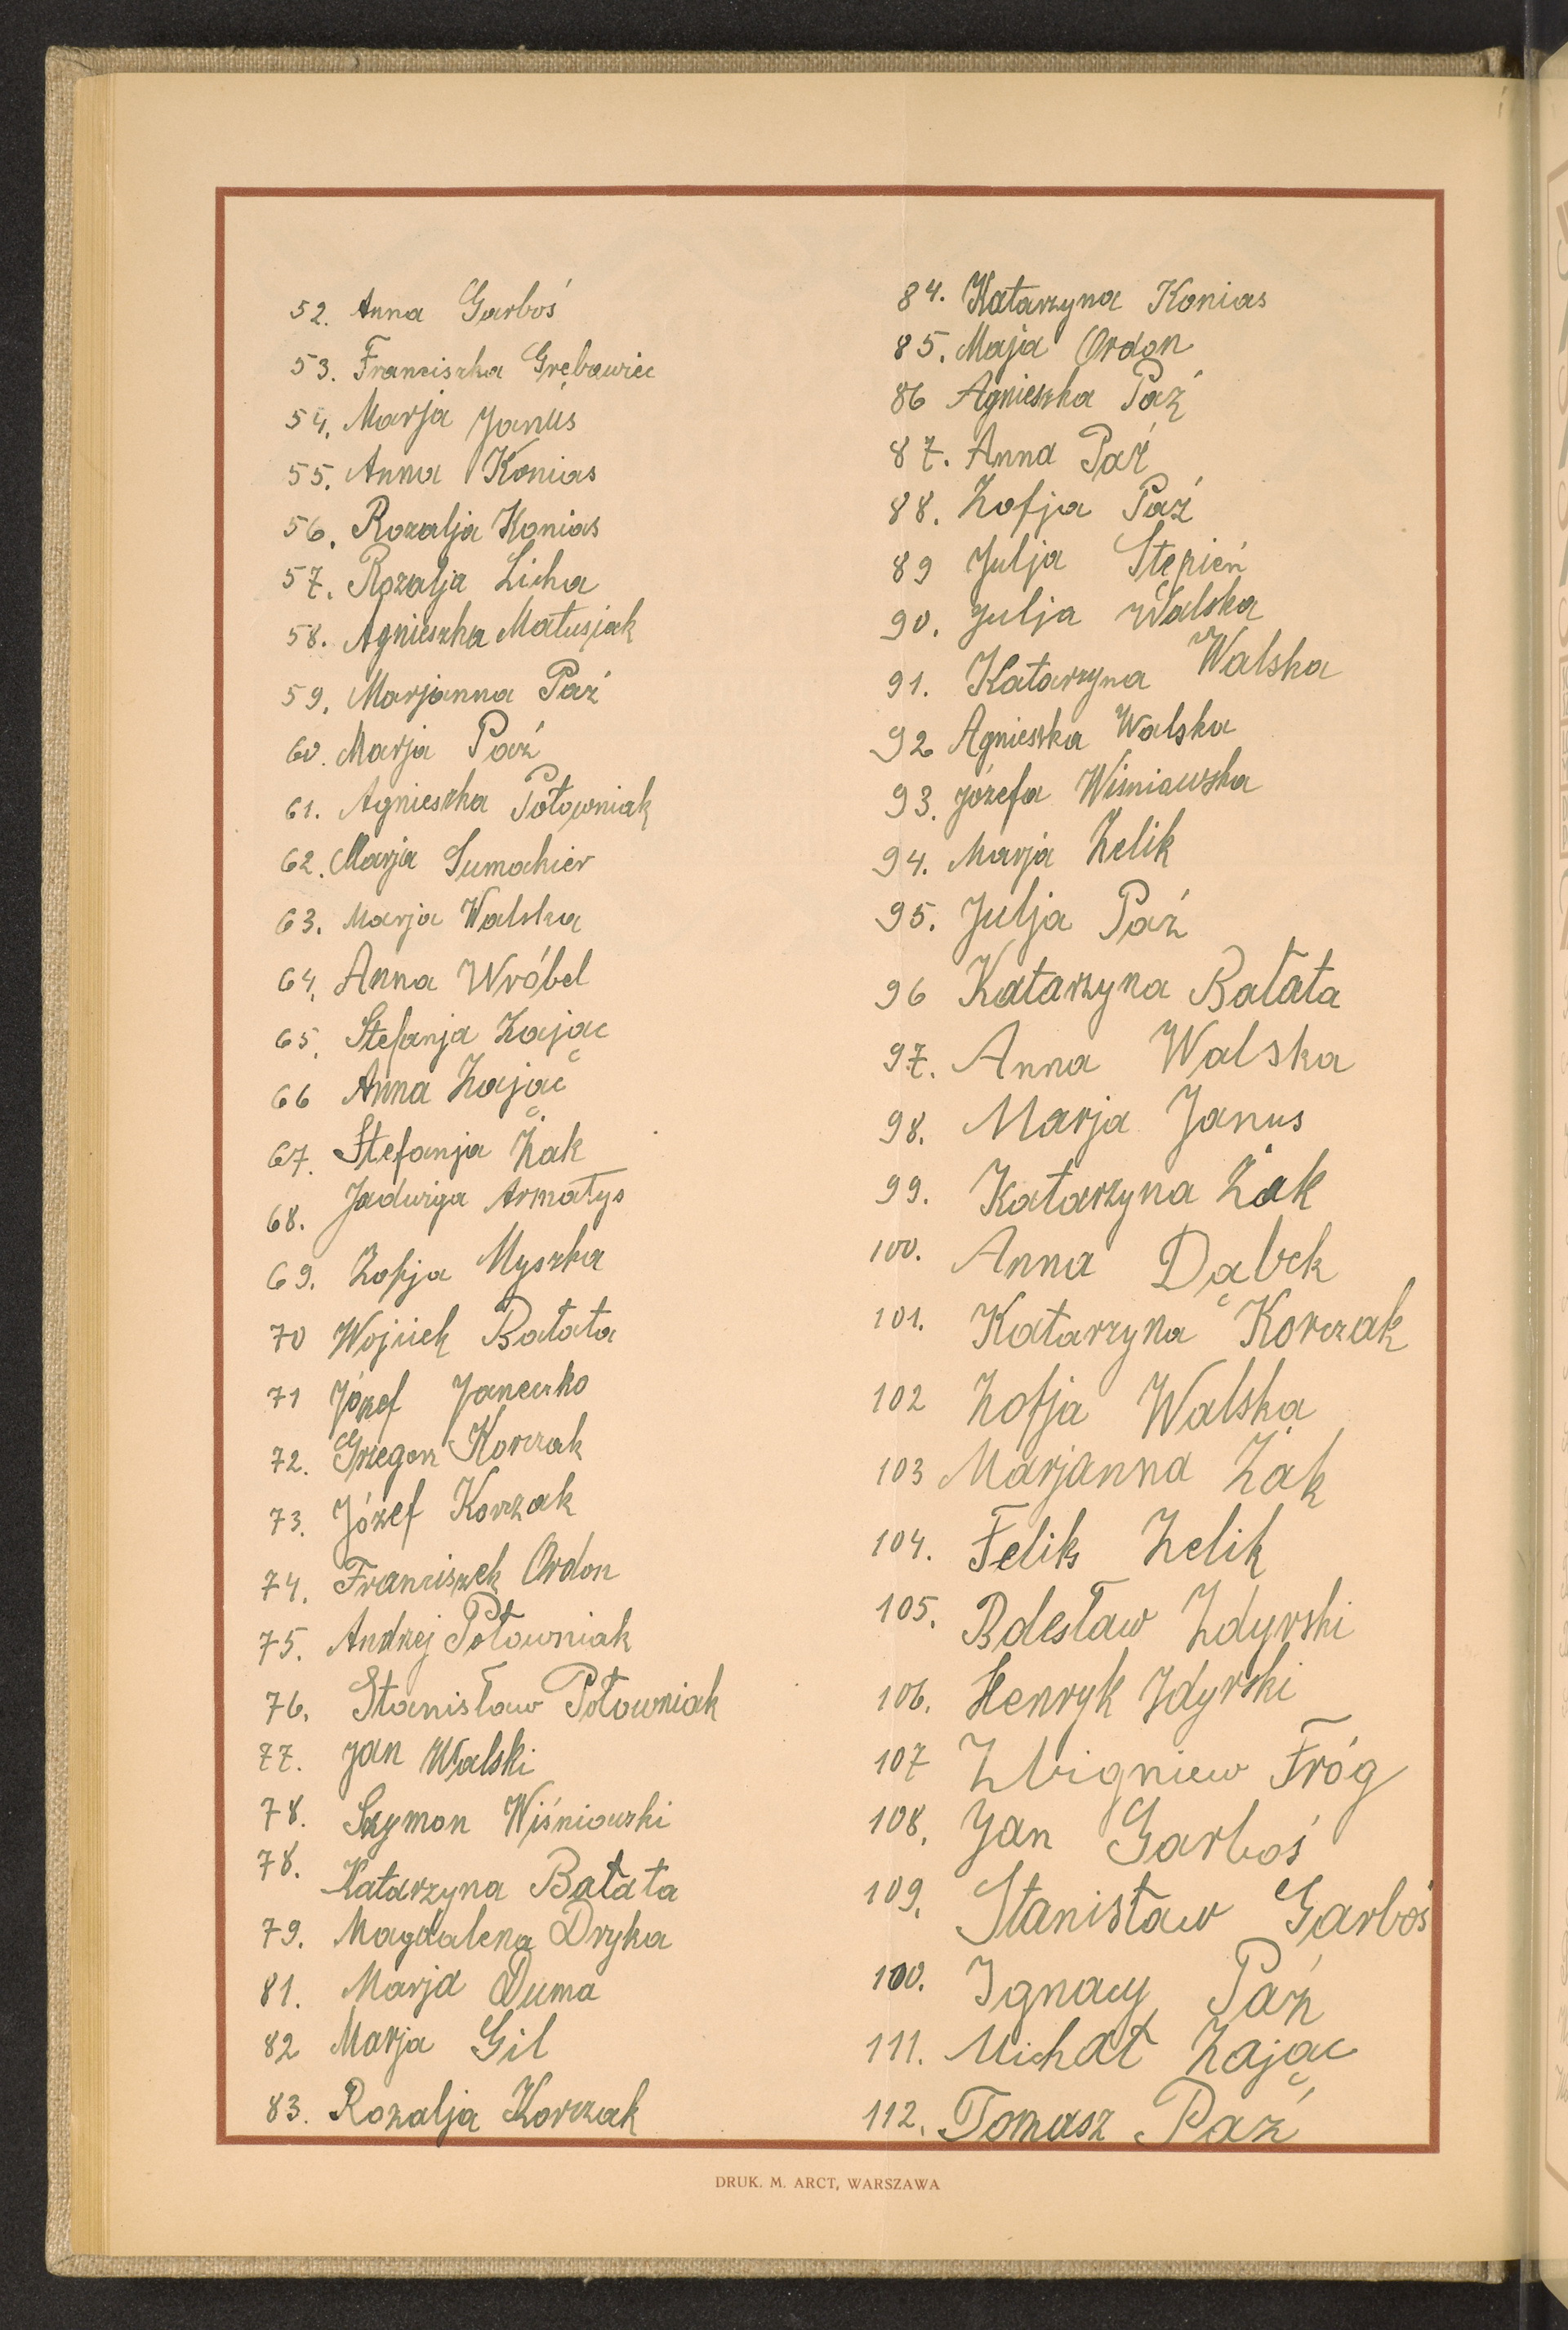 52. Anna Garboś
53. Franciszka Grębowiec
54. Marja Janus
55. Anna Konias
56. Rozalja Konias
57. Rozalja Licha
58. Agnieszka Matusiak
59. Marjanna Paź
60. Marja Paź
61. Agnieszka Połowniak
62. Marja Sumahier
63. Marja Walska
64. Anna Wróbel
65. Stefanja Zając
66 Anna Zając
67. Stefanja Żak
68. Jadwiga Armatys
69. Zofja Myszka
70 Wojciech Batata
71 Józef Janeczko
72. Grzegorz Korczak
73. Józef Korczak
74. Franciszek Ordon
75. Andrzej Połowniak
76. Stanisław Połowniak
77. Jan Walski
78. Szymon Wiśniowski
78. Katarzyna Batata
79. Magdalena Dryka
81. Marja Duma
82 Marja Gil
83. Rozalja Korczak
84. Katarzyna Konias
85. Maja Ordon
86 Agnieszka Paź
87. Anna Paź
88. Zofja Paź
89 Julja Stepień
90. Julja Walska
91. Katarzyna Walska
92 Agnieszka Walska
93. Józefa Wiśniowska
94. Marja Zelik
95. Julja Paź
96 Katarzyna Batata
97. Anna Walska
98. Marja Janus
99. Katarzyna Żak
100. Anna Dąbek
101. Katarzyna Korczak
102 Zofja Walska
103 Marjanna Żak
104. Feliks Zelik
105. Bolesław Zdyrski
106. Henryk Zdyrski
107 Zbigniew Fróg
108. Jan Garboś
109. Stanisław Garboś
100. Ignacy Paź
111. Michał Zając
112. Tomasz Paź
DRUK. M. ARCT, WARSZAWA